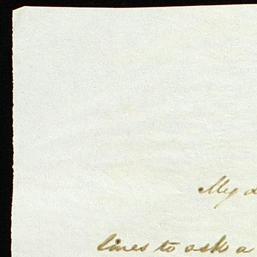 My
lines to ask a